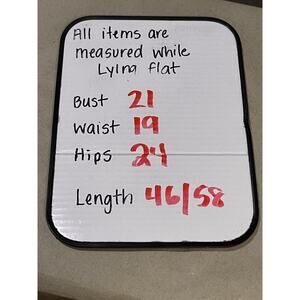 All items are
measured while
Lying flat
Bust 21
Waist 19
Hips 24
Length 46/58